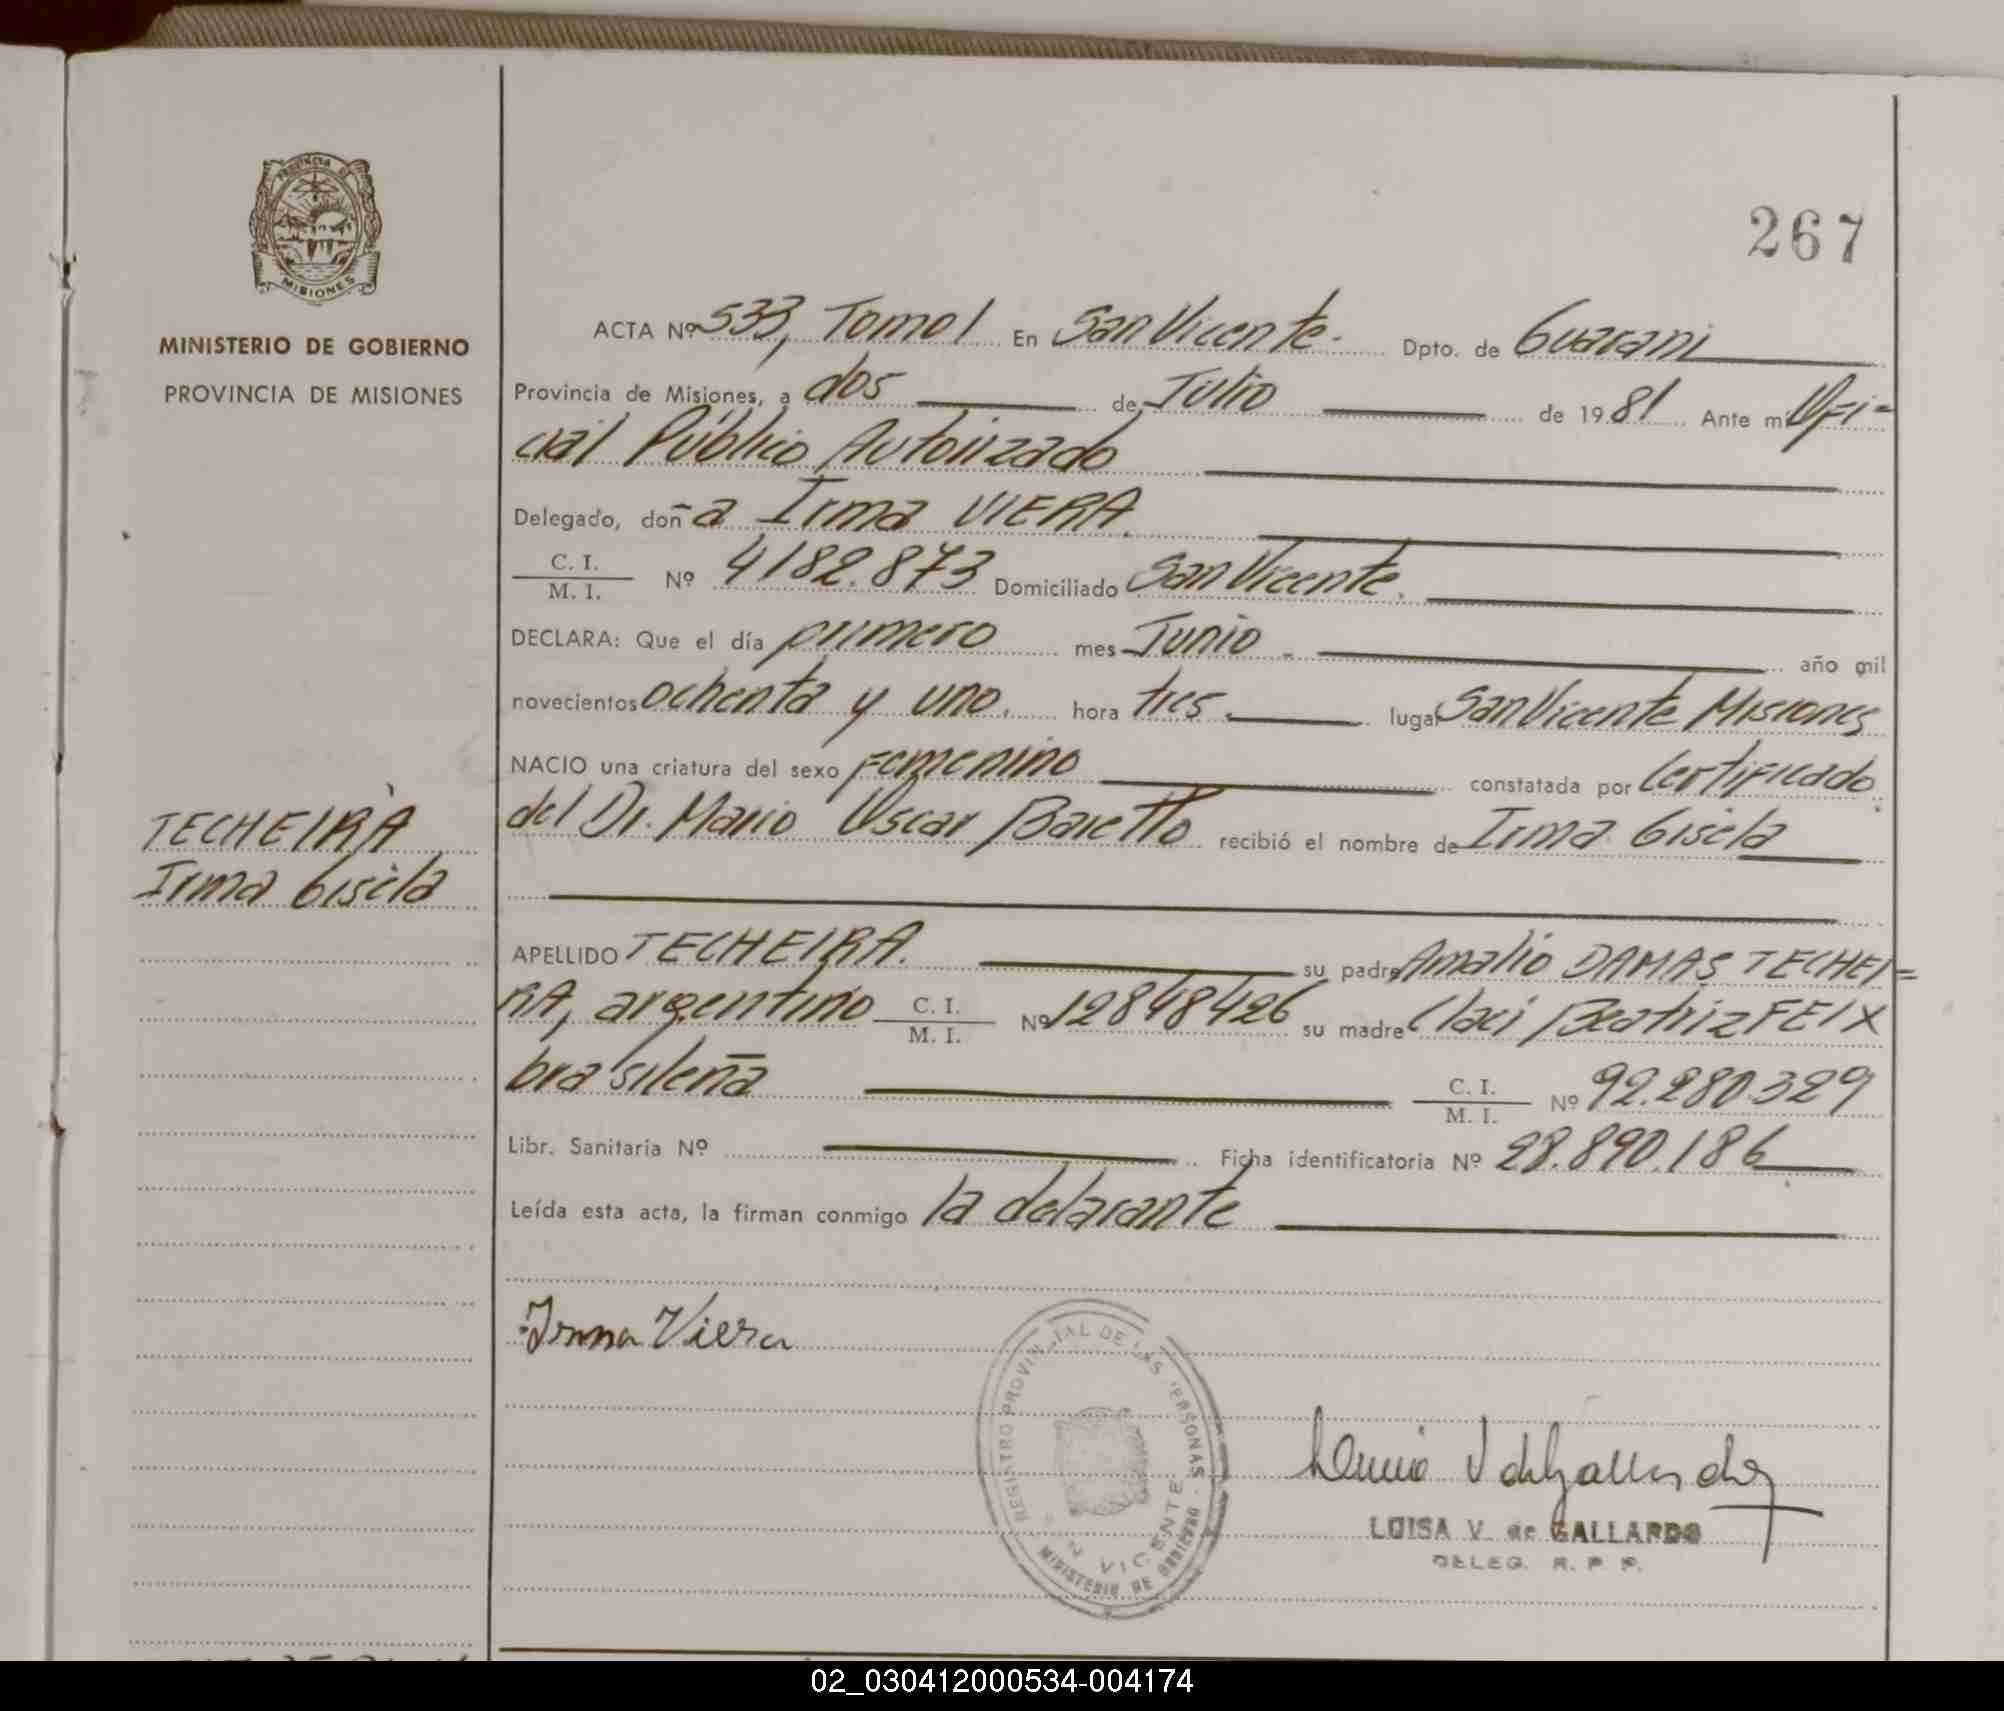 267
PROVINCIA DE
MISIONES
MINISTERIO DE GOBIERNO
PROVINCIA DE MISIONES
ACTA Nº 533, Tomo I En San Vicente. Dpto. de Guarani
Provincia de Misiones, a dos de Julio de 1981 Ante mi Ofi=
cial Público Autorizado
Delegado, doña Irma VIERA.
C. I.
M. I. Nº 4182.873 Domiciliado San Vicente.
DECLARA: Que el día primero mes Junio año mil
novecientos ochenta y uno. hora tres lugar San Vicente Misiones
NACIO una criatura del sexo Femenino constatada por Certificado
del Dr. Mario Oscar Baretto recibió el nombre de Irma Gisela
TECHEIRA
Irma Gisela
APELLIDO TECHEIRA. su padre Amalio DAMAS TECHEI=
RA, argentino C. I. M. I. Nº 12848426 su madre Claci Beatriz FEIX
brasileña C. I. M. I. Nº 92.280.329
Libr. Sanitaria Nº Ficha identificatoria Nº 28.890.186
Leída esta acta, la firman conmigo la delarante
Irma Viera
REGISTRO PROVINCIAL DE LAS PERSONAS
VICENTE
MINISTERIO DE GOBIERNO
LUISA V. de GALLARDO
DELEG. R. P. P.
02_030412000534-004174